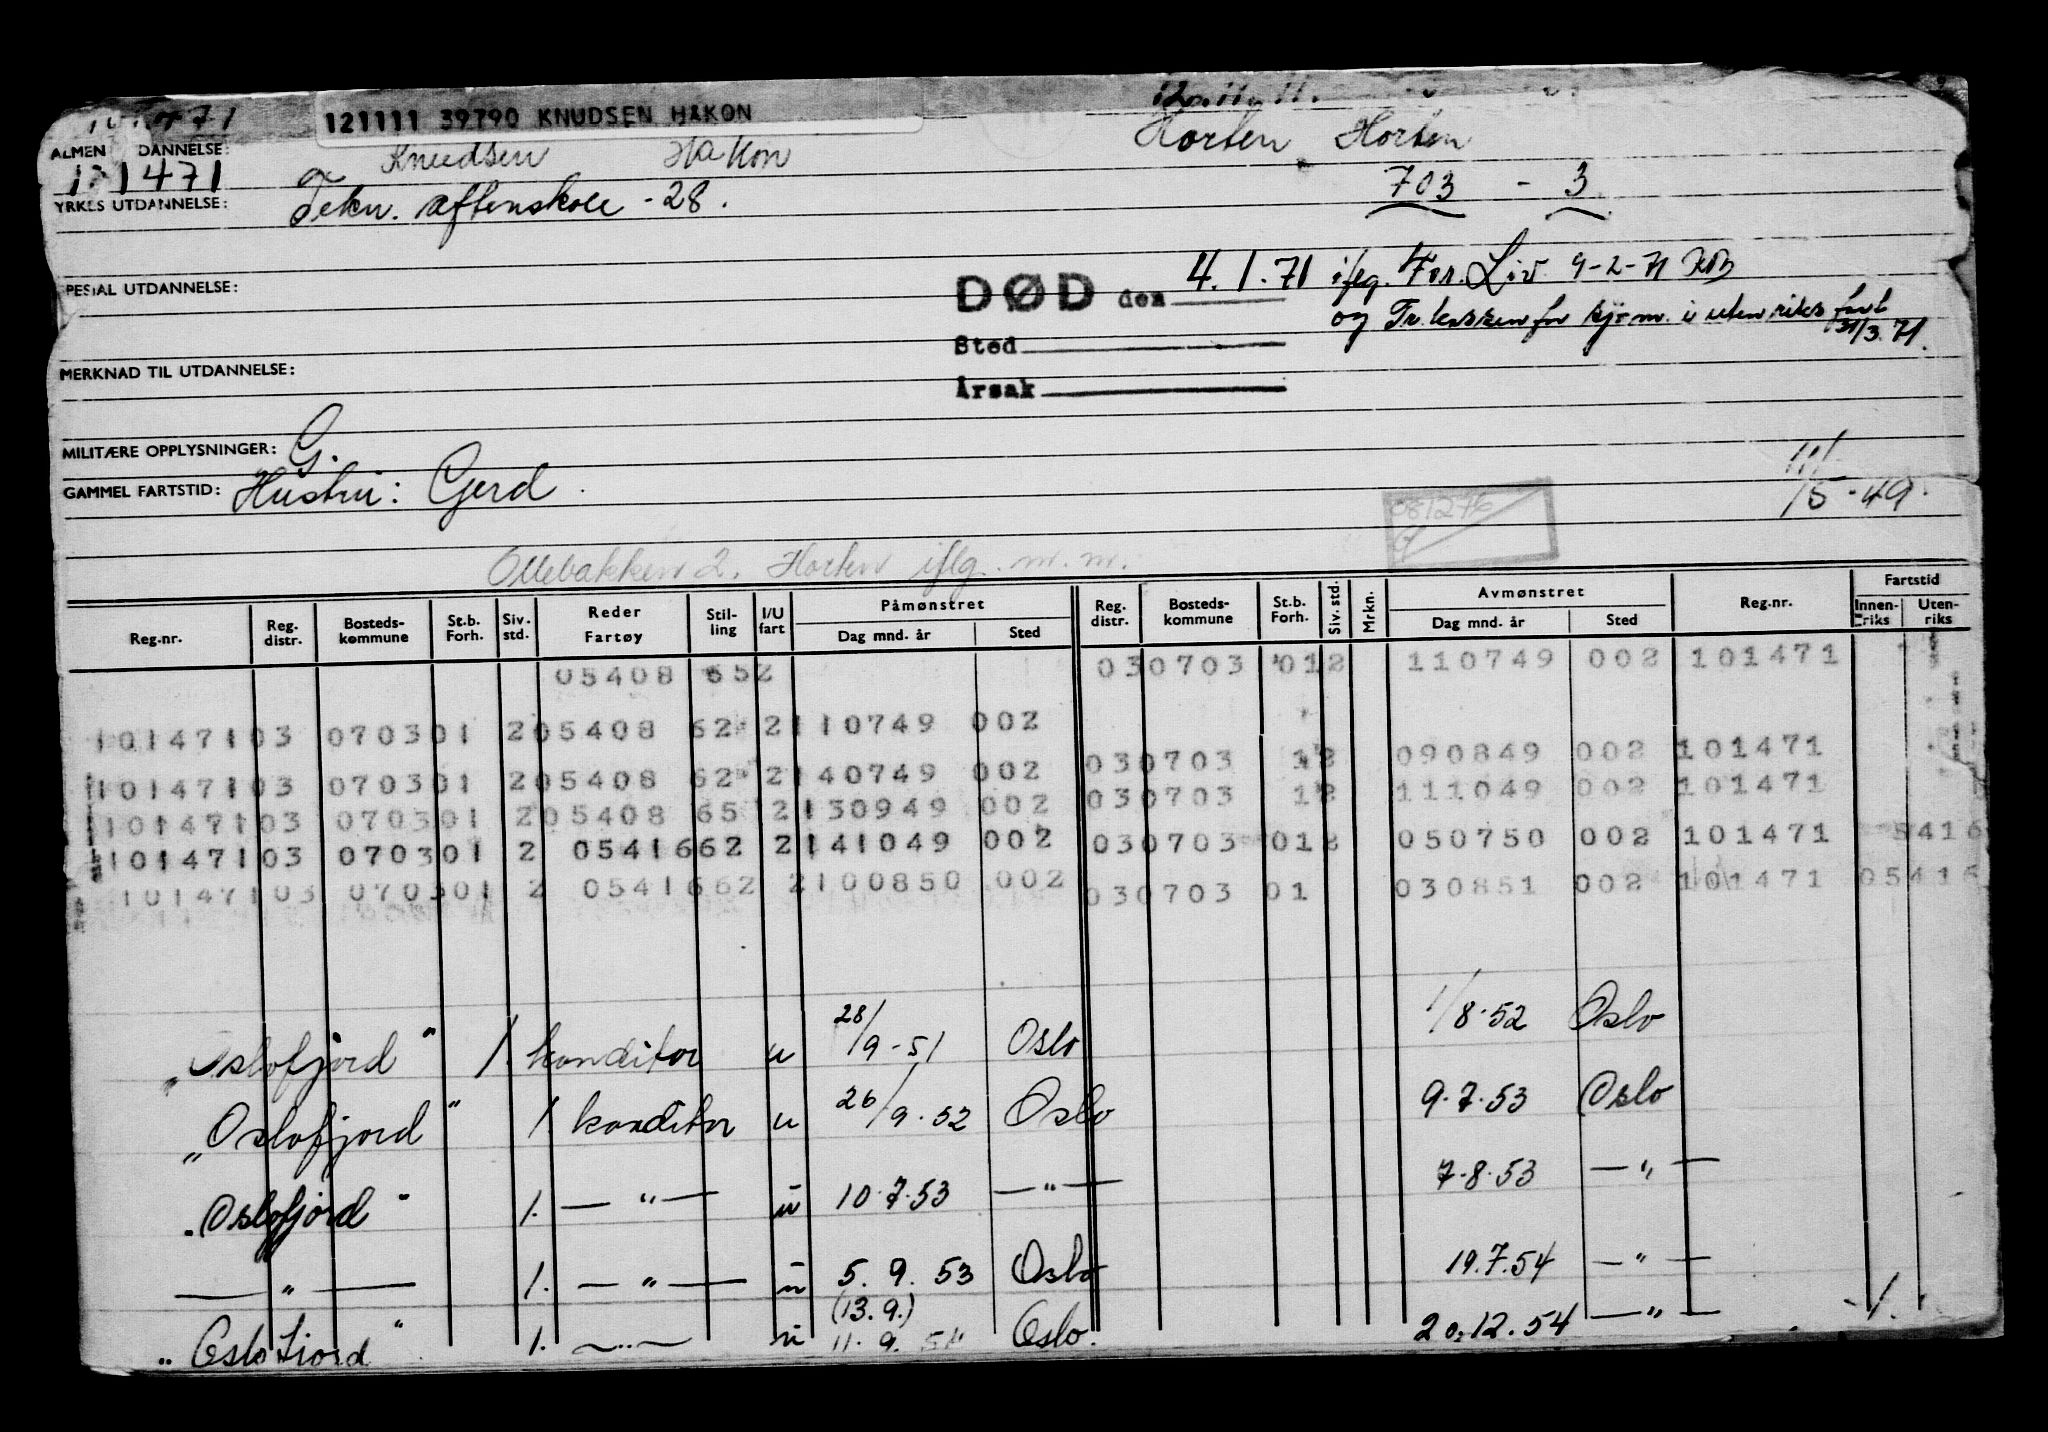 121111 39790 KNUDSEN HAKON
12.11.11.
ALMEN DANNELSE:
Knudsen Håkon
Horten Horten
101471
YRKES UTDANNELSE:
Tekn. aftenskole - 28.
703 - 3
SPESIAL UTDANNELSE:
DØD den 4.1.71 iflg. For. Liv 9-2-71
og Tr.kassen for sjøm. i utenriks fart
31/3.71.
Sted
MERKNAD TIL UTDANNELSE:
Årsak
MILITÆRE OPPLYSNINGER: G.
GAMMEL FARTSTID: Hustru: Gerd.
11/5-49.
081276
Ollebakken 2. Horten iflg. m.m.
Reg.nr. Reg. distr. Bosteds-kommune St.b. Forh. Siv. std. Reder Fartøy Stil-ling I/U fart Påmønstret Dag mnd. år Sted Reg. distr. Bosteds-kommune St.b. Forh. Siv. std. Mrkn. Avmønstret Dag mnd. år Sted Reg.nr. Fartstid Innen-riks Uten-riks
05408 652 030703 012 110749 002 101471
10147103 070301 205408 62 2110749 002 030703 12 090849 002 101471
10147103 070301 205408 62 2140749 002 030703 12 111049 002 101471
10147103 070301 205408 65 2130949 002
10147103 070301 2 0541662 2141049 002 030703 012 050750 002 101471 5416
10147103 070301 2 0541662 2100850 002 030703 01 030851 002 101471 05416
„Oslofjord" 1. konditor u 28/9-51 Oslo 1/8.52 Oslo
„Oslofjord" 1. konditor u 26/9.52 Oslo 9.7.53 Oslo
„Oslofjord" 1. — " — u 10.7.53 — " — 7.8.53 — " —
— " — 1. — " — u 5.9.53 Oslo 19.7.54 — " —
(13.9.)
„Oslofjord" 1. — " — u 11.9.54 Oslo. 20.12.54 — " —